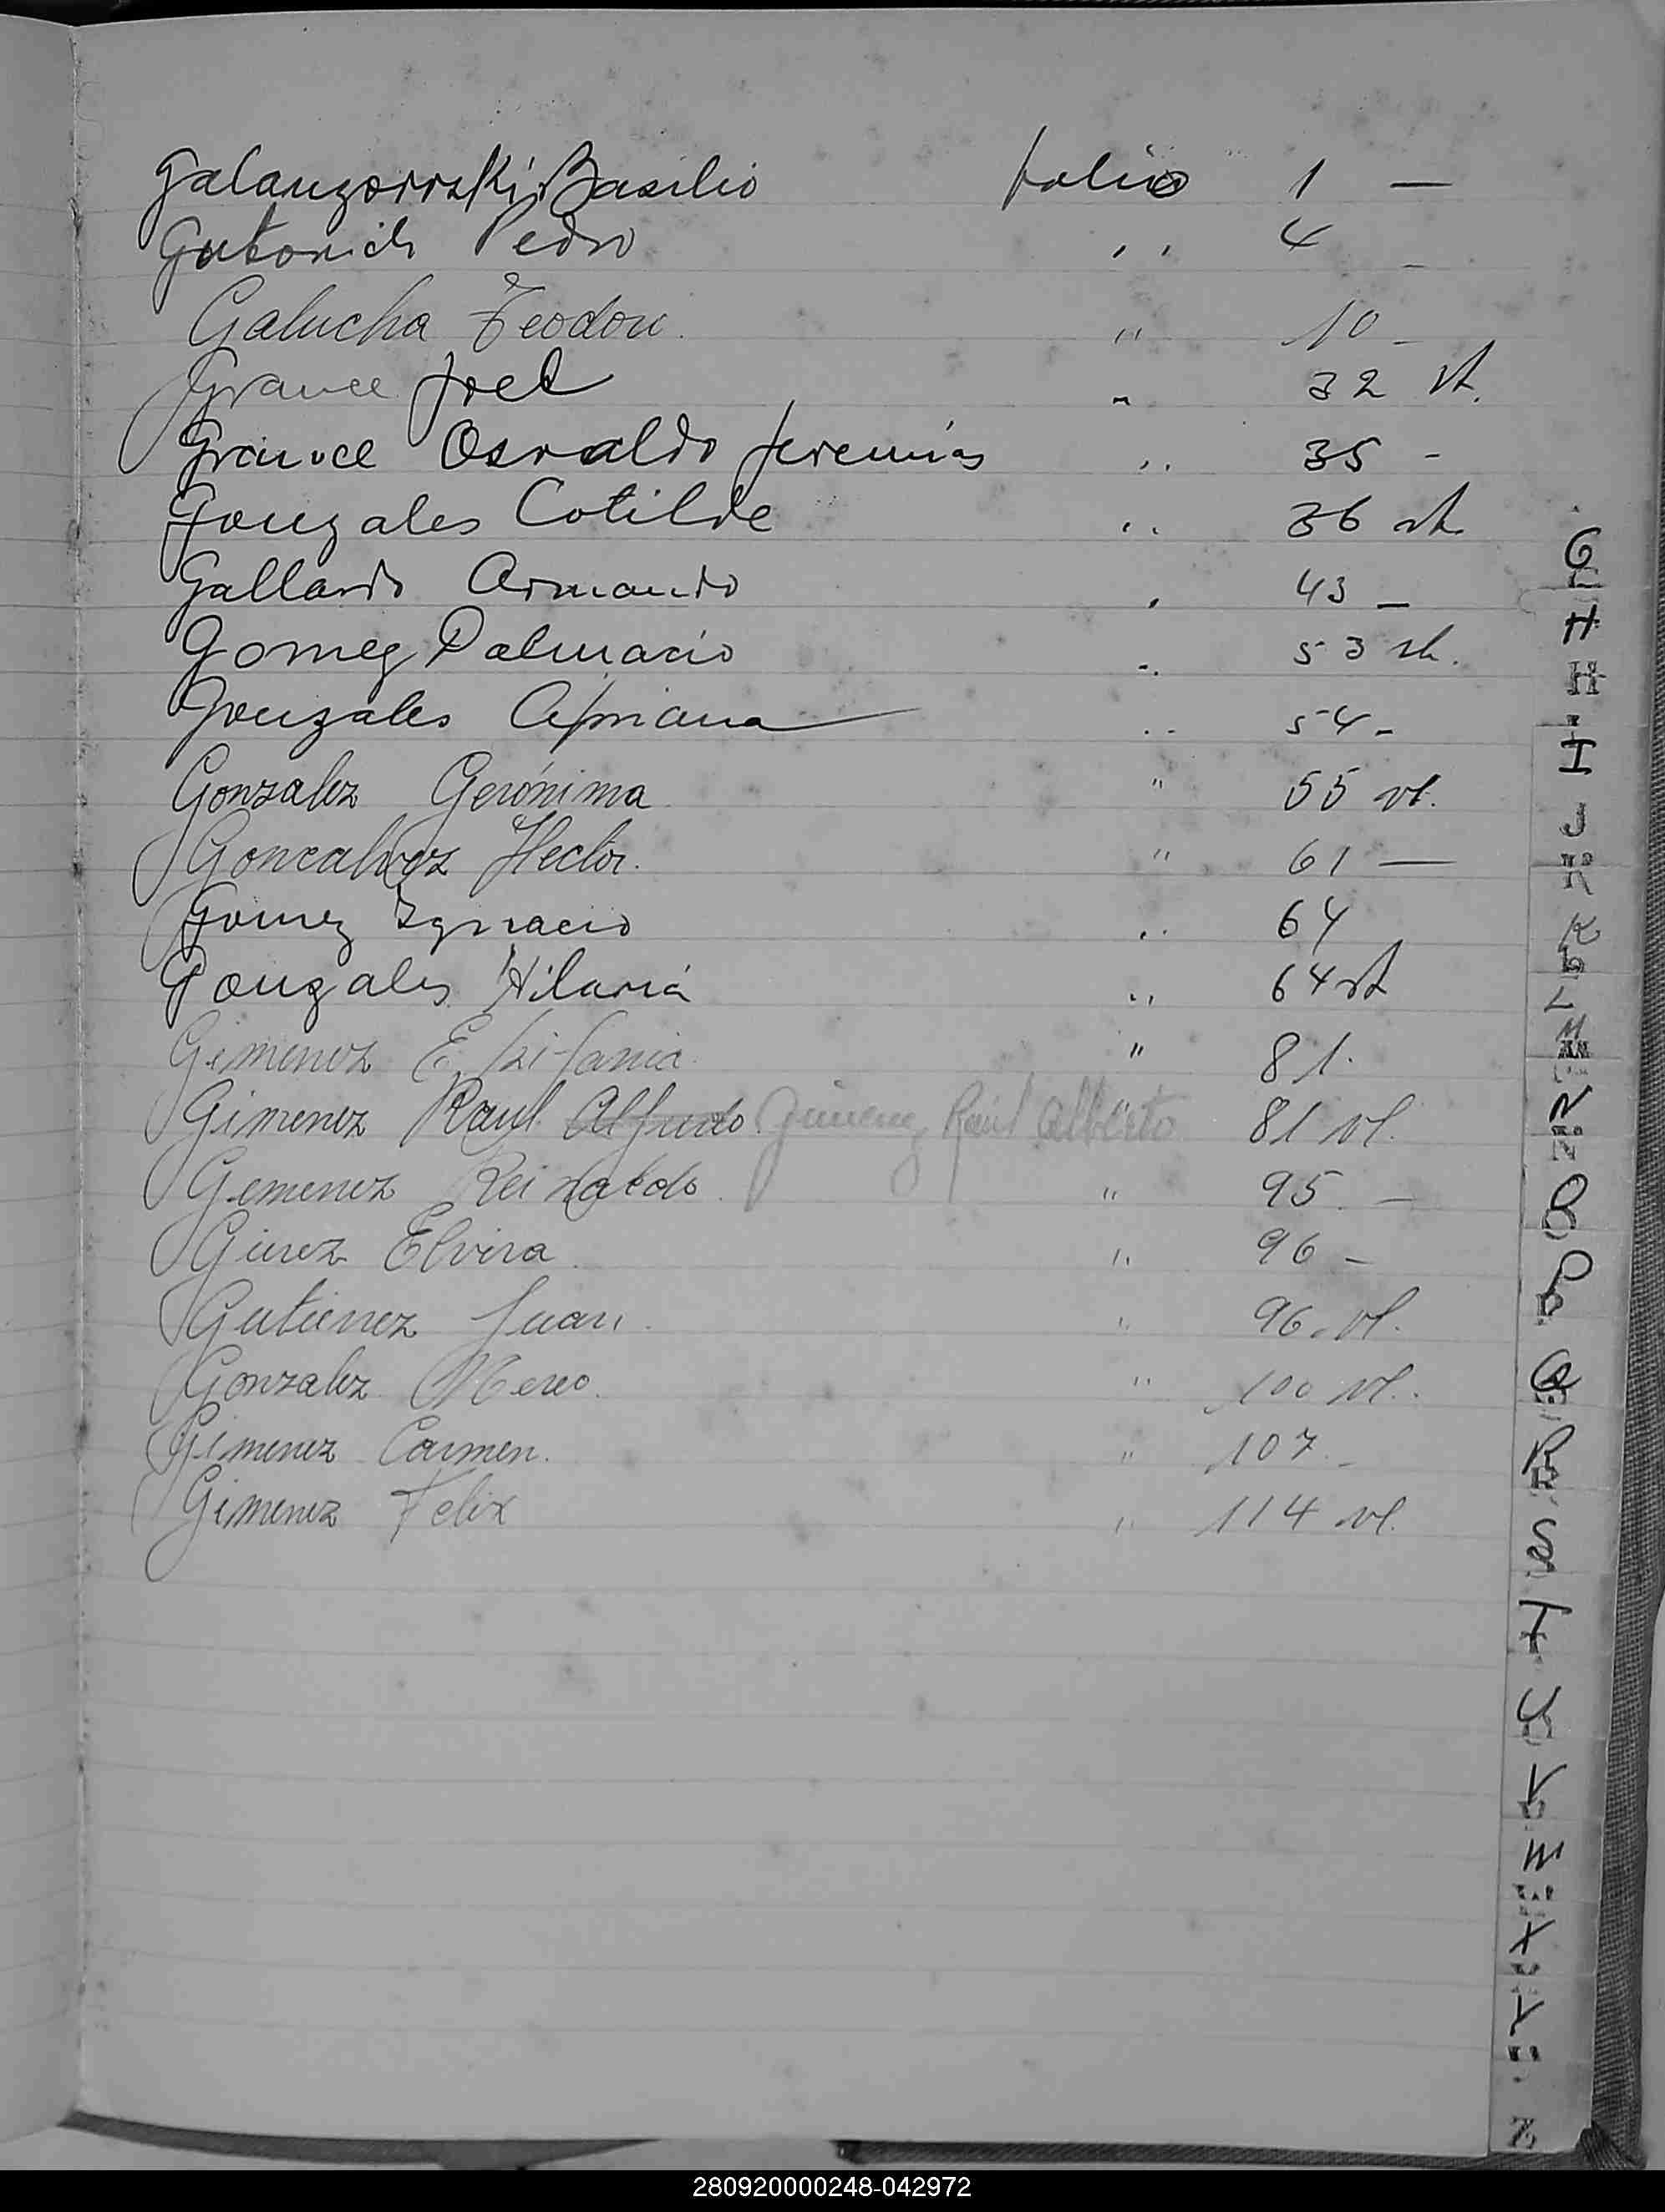 Basilio folio 1 —
Pedro " 4 -
Galucha Teodoro " 10 -
Grance Joel " 32 vt.
Grance Osvaldo Jeremías " 35 -
Gonzales Cotilde " 36 vt
Gallardo Armando " 43 -
Gomez Dalmacio " 53 vt.
Gonzales Cipriana " 54 -
Gonzalez Gerónima " 55 vt.
Goncalvez Hector. " 61 —
Gomez Ignacio " 64
Gonzales Hilaria " 64 vt
Gimenez Epifania " 81.
Gimenez Raul Alfredo. Gimenez Raúl Alberto 81 vt.
Gimenez Reinaldo. " 95. —
Elvira " 96 -
Gutierrez Juan. " 96. vt.
Gonzalez " 100 vt.
Gimenez Carmen. " 107. -
Gimenez Felix " 114 vt.
G
H
H
I
J
K
K
L
M
N
N
O
P
Q
R
R
S
T
U
V
W
X
Y
Z
280920000248-042972